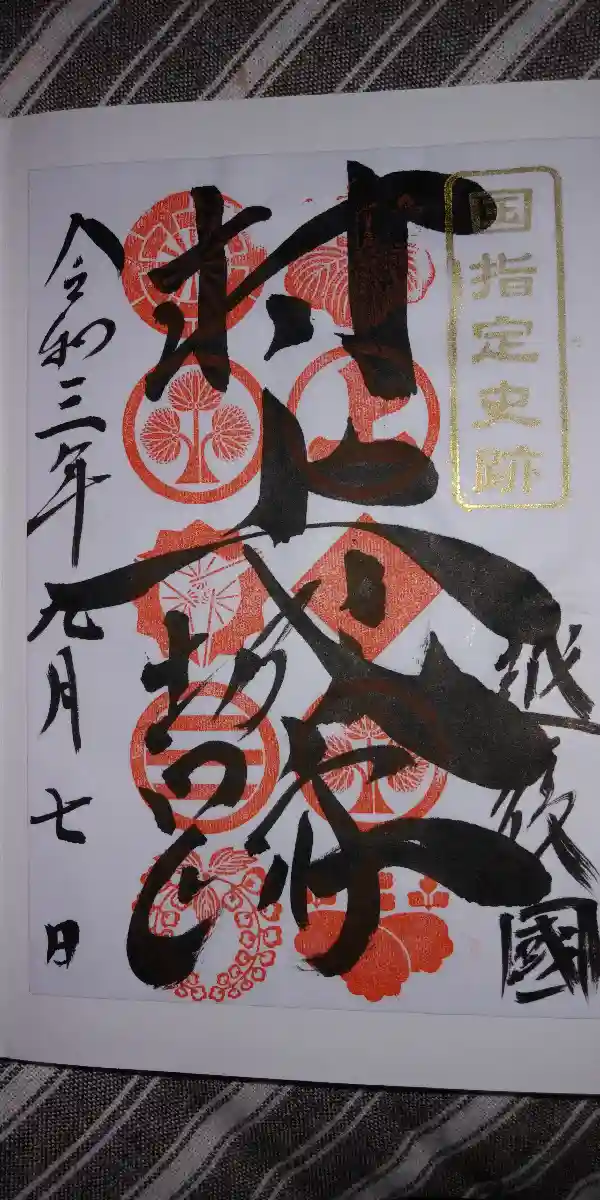 国指定史跡
越後國
村上
令和三年九月七日